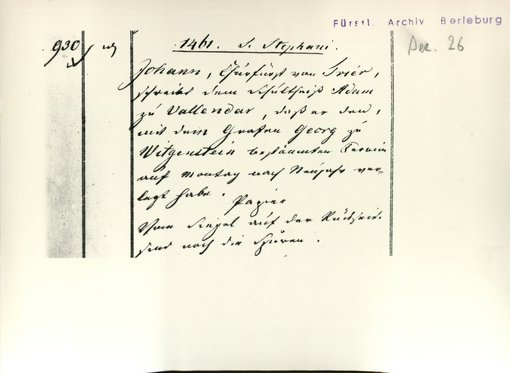 Fürstl. Archiv Berleburg
Dec. 26
930
1461. S. Stephani.
Johann, Churfürst von Trier,
schreibt dem Schultheiß Adam
zu Vallendar, daß er den,
mit dem Grafen Georg zu
Witgenstein bestimmten Termin
auf Montag nach Neujahr ver-
legt habe.
Papier
Vom Siegel auf der Rückseite
sind noch die Spuren.